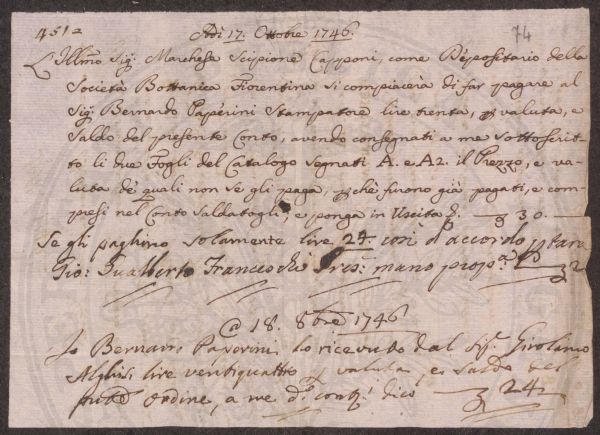 4512
Adì 17. Ottobre 1746.
74
L'Illmo Sig: Marchese Scipione Capponi, come Depositario della
Società Bottanica Fiorentina si compiacerà di far pagare al
Sig: Bernardo Paperini Stampatore lire trenta, valuta, e
Saldo del presente Conto, avendo consegnati a me sottoscrit-
to li due Fogli del Catalogo segnati A. e A2. il Prezzo, e va-
luta de' quali non se gli paga, pchè furono già pagati, e com-
presi nel Conto saldatogli, e ponga in Uscita 30.
Se gli paghino solamente lire 24 così d'accordo p tara
Gio: Gualberto Franceschi mano propa
18. 8bre 1746
Io Bernardo Paperini ho ricevuto dal Sig. Girolamo
lire ventiquattro p valuta, e saldo del
ordine, a me dico 24